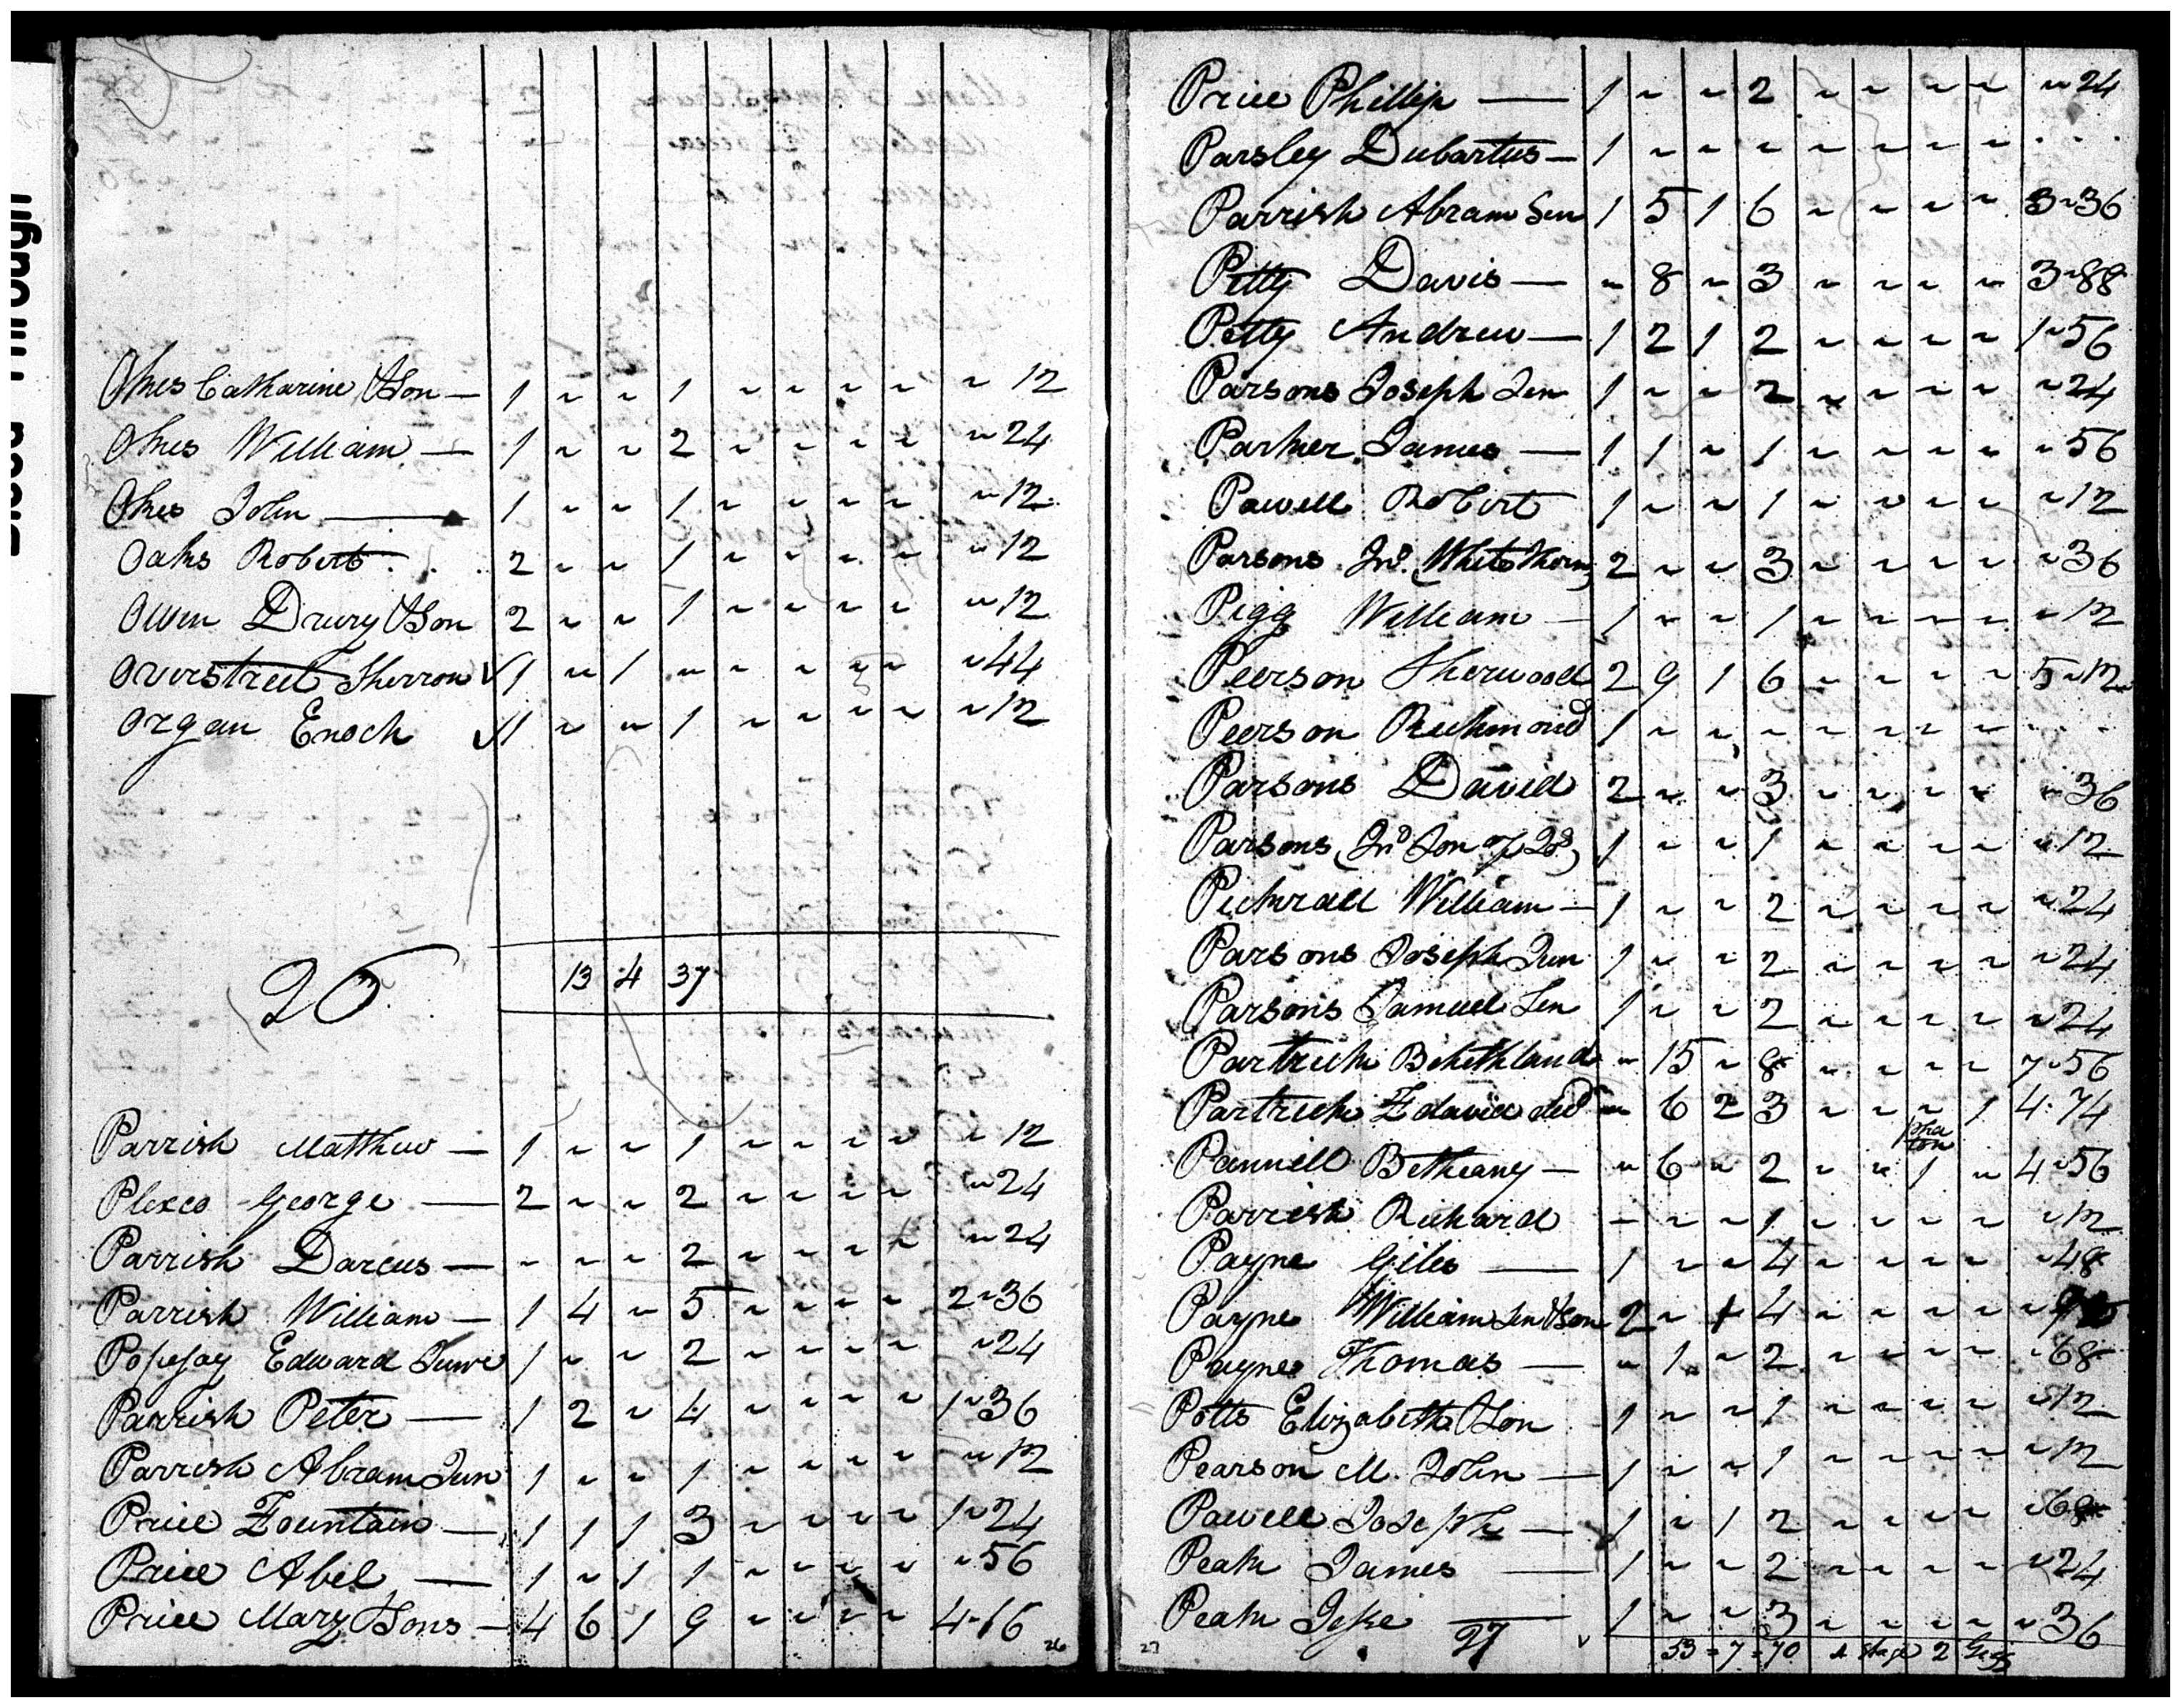 Okes Catharine & Son — 1 ~ ~ 1 ~ ~ ~ ~ ~ 12
Okes William — 1 ~ ~ 2 ~ ~ ~ ~ ~ 24
Okes John — 1 ~ ~ 1 ~ ~ ~ ~ ~ 12
Oaks Robert 2 ~ ~ 1 ~ ~ ~ ~ ~ 12
Owen Drury & Son 2 ~ ~ 1 ~ ~ ~ ~ ~ 12
Overstreet Sherron √ 1 ~ 1 ~ ~ ~ ~ ~ ~ 44
Organ Enoch √ 1 ~ ~ 1 ~ ~ ~ ~ ~ 12
26 13 4 37
Parrish Matthew — 1 ~ ~ 1 ~ ~ ~ ~ ~ 12
Plexco George — 2 ~ ~ 2 ~ ~ ~ ~ ~ 24
Parrish Darcus — ~ ~ ~ 2 ~ ~ ~ ~ ~ 24
Parrish William — 1 4 ~ 5 ~ ~ ~ ~ 2~36
Popejoy Edward 1 ~ ~ 2 ~ ~ ~ ~ ~ 24
Parrish Peter — 1 2 ~ 4 ~ ~ ~ ~ 1~36
Parrish Abram Jun 1 ~ ~ 1 ~ ~ ~ ~ ~ 12
Price Fountain — 1 1 1 3 ~ ~ ~ ~ 1~24
Price Abel — 1 ~ 1 1 ~ ~ ~ ~ ~ 56
Price Mary & Sons — 4 6 1 9 ~ ~ ~ ~ 4~16
26
Price Phillip — 1 ~ ~ 2 ~ ~ ~ ~ ~ 24
Parsley Dubartus — 1 ~ ~ ~ ~ ~ ~ ~ . . .
Parrish Abram Sen 1 5 1 6 ~ ~ ~ ~ 3~36
Petty Davis — ~ 8 ~ 3 ~ ~ ~ ~ 3~88
Petty Andrew — 1 2 1 2 ~ ~ ~ ~ 1~56
Parsons Joseph Sen 1 ~ ~ 2 ~ ~ ~ ~ ~ 24
Parker James — 1 1 ~ 1 ~ ~ ~ ~ ~ 56
Powell Robert 1 ~ ~ 1 ~ ~ ~ ~ ~ 12
Parsons Jno. (White Thorn) 2 ~ ~ 3 ~ ~ ~ ~ ~ 36
Pigg William — 1 ~ ~ 1 ~ ~ ~ ~ ~ 12
Peerson Sherwood 2 9 1 6 ~ ~ ~ ~ 5~12
Peerson Richmond 1 ~ ~ ~ ~ ~ ~ ~ . .
Parsons David 2 ~ ~ 3 ~ ~ ~ ~ ~ 36
Parsons (Jno Son of Jos) 1 ~ ~ 1 ~ ~ ~ ~ ~ 12
Pickrall William — 1 ~ ~ 2 ~ ~ ~ ~ ~ 24
Parsons Joseph Jun 1 ~ ~ 2 ~ ~ ~ ~ ~ 24
Parsons Samuel Sen 1 ~ ~ 2 ~ ~ ~ ~ ~ 24
Partrick Behethland ~ 15 ~ 8 ~ ~ ~ ~ 7~56
Partrick ded ~ 6 2 3 ~ ~ ~ 1 4.74
Pannill Betheany — ~ 6 ~ 2 ~ ~ 1 ~ 4~56
Parrish Richard — ~ ~ 1 ~ ~ ~ ~ ~ 12
Payne Giles — 1 ~ ~ 4 ~ ~ ~ ~ ~ 48
Payne William Sen & Son 2 ~ 1 4 ~ ~ ~ ~ ~
Payne Thomas — ~ 1 ~ 2 ~ ~ ~ ~ ~ 68
Potts Elizabeth & Son 1 ~ ~ 1 ~ ~ ~ ~ ~ 12
Pearson M. John — 1 ~ ~ 1 ~ ~ ~ ~ ~ 12
Powell Joseph — 1 ~ 1 2 ~ ~ ~ ~ ~ 68
Peak James — 1 ~ ~ 2 ~ ~ ~ ~ ~ 24
Peak Jesse — 1 ~ ~ 3 ~ ~ ~ ~ ~ 36
27 27 53 = 7 = 70 stage 2 Gigs